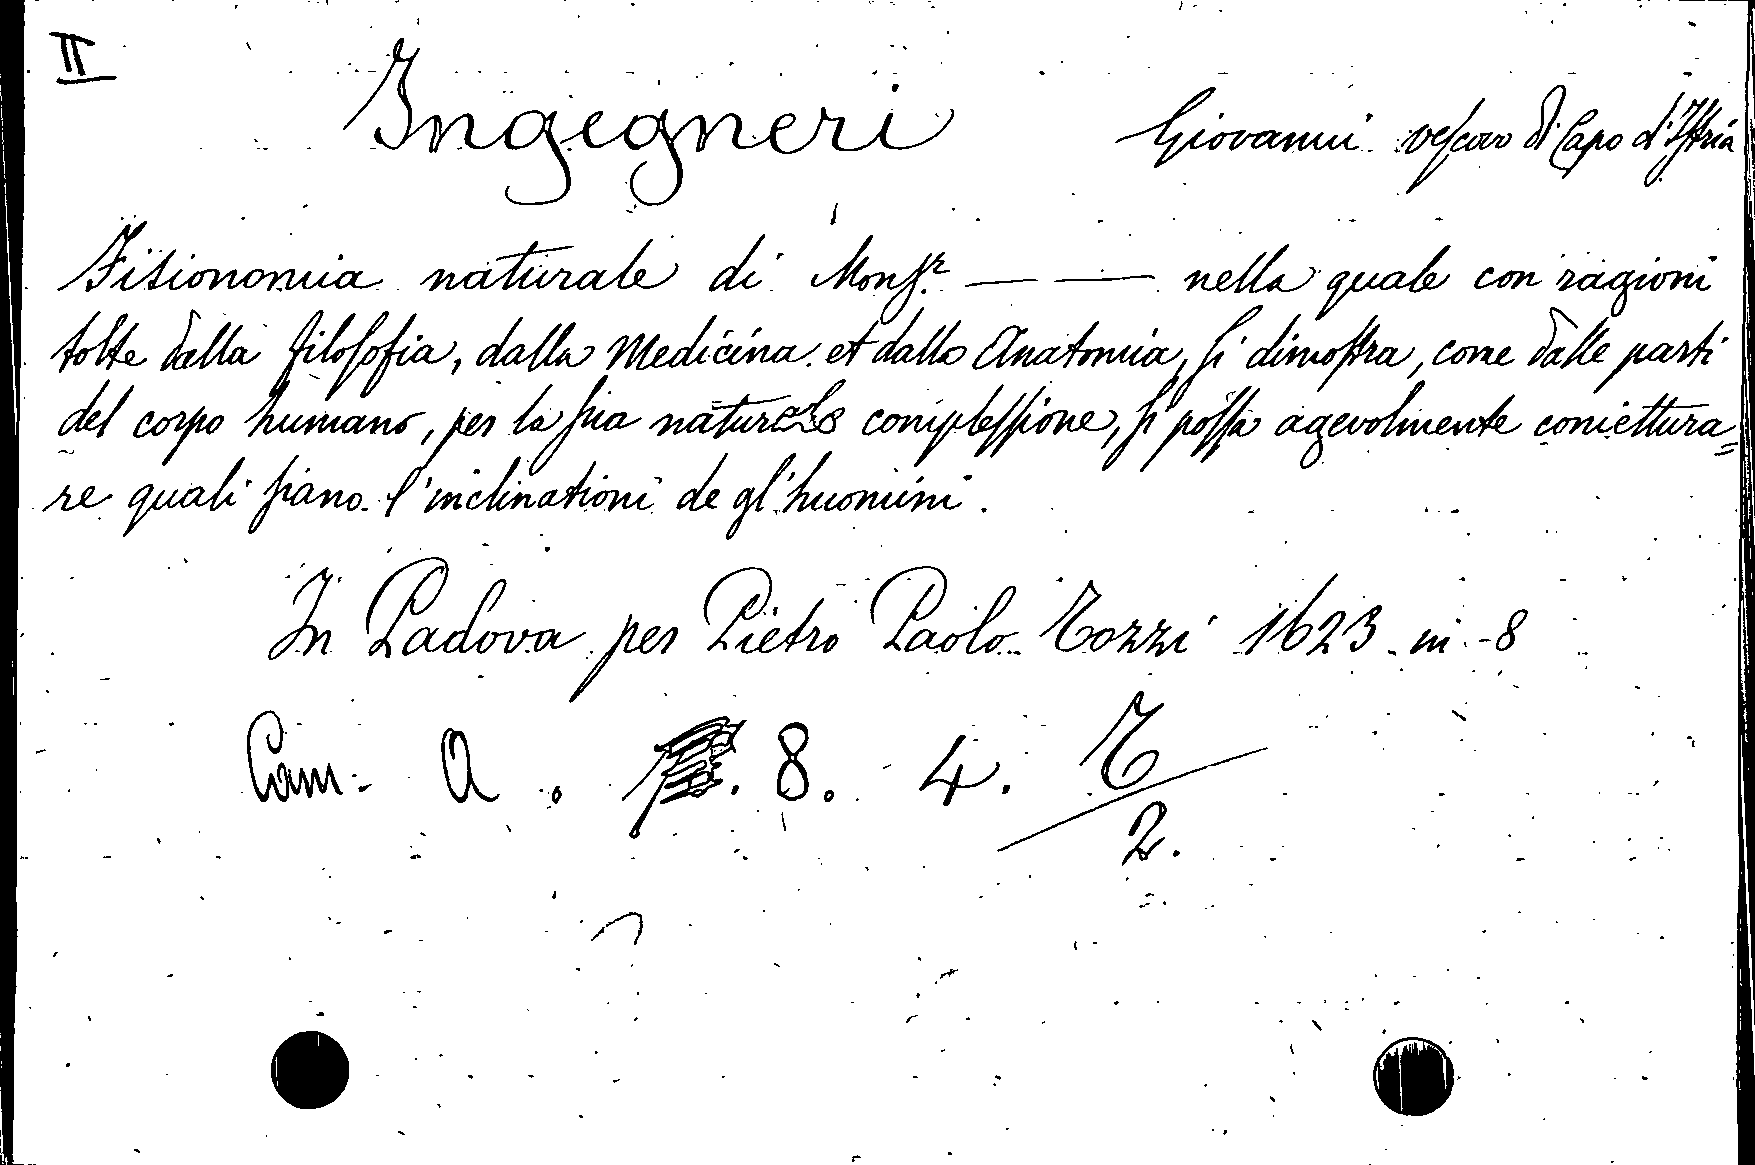 II
Ingegneri Giovanni veſcovo di Capo d'Iſtria
Fisionomia naturale di Monſ.r — — nella quale con ragioni
tolte dalla filoſofia, dalla Medicina et dalla Anatomia, ſi dimoſtra, come dalle parti
del corpo humano, per la ſua naturale compleſſione, ſi poſſa agevolmente coniettura=
re quali ſiano l'inclinationi de gl'huomini.
In Padova per Pietro Paolo Tozzi 1623 in -8
Cam: A. 8. 4. T/2.